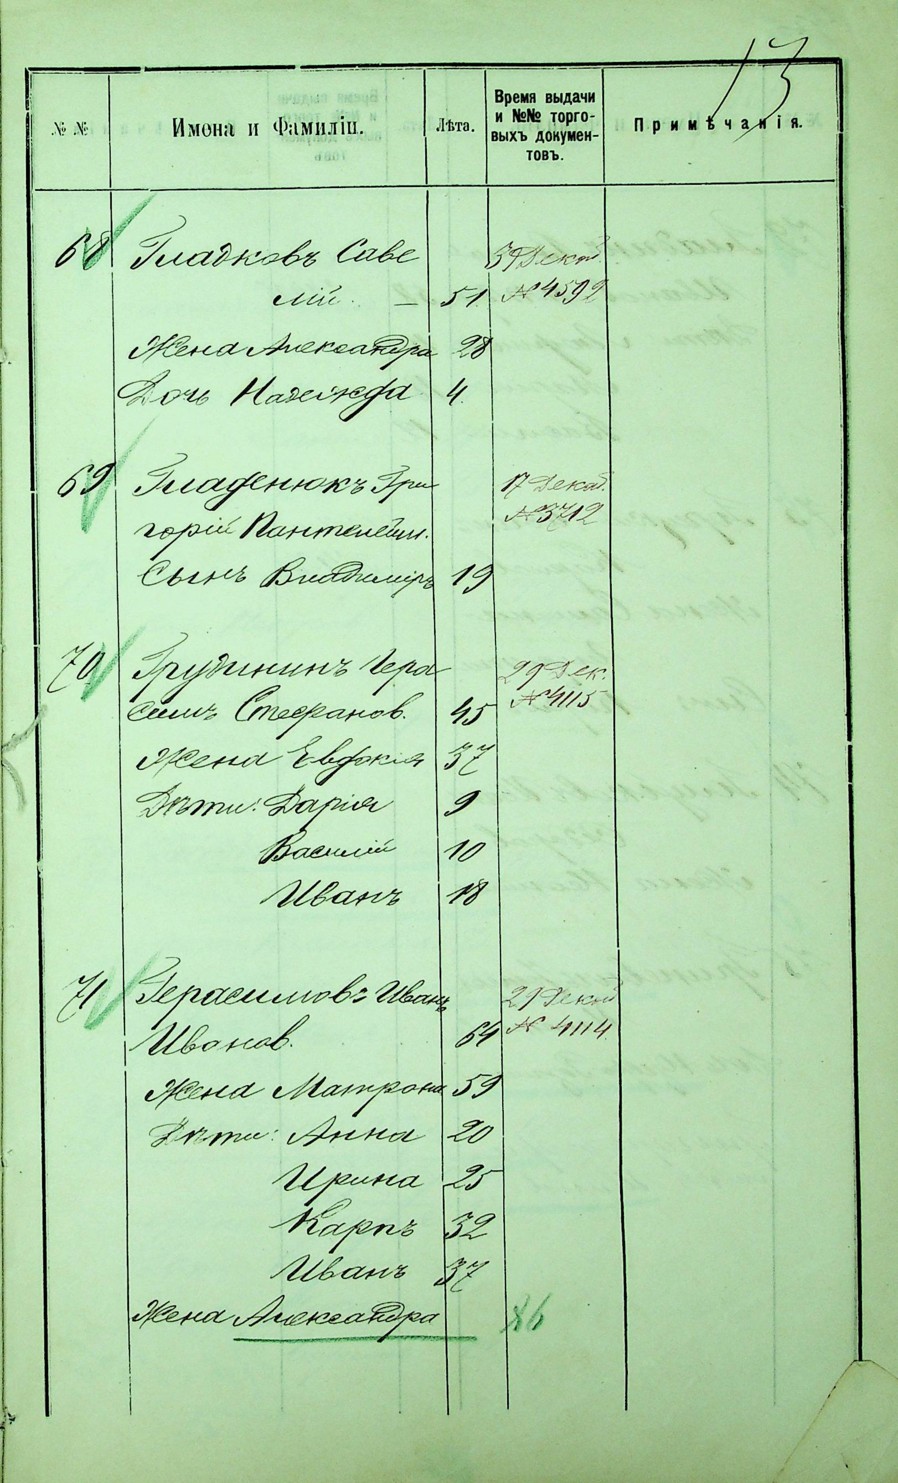 13
№ № Имена и Фамиліи. Лѣта. Время выдачи и №№ торговыхъ документовъ. Примѣчанія.
68 Гладковъ Саве
лій. — 51 № 4592
Жена Александра 28
Дочь Надежда 4
69 Гладенюкъ Гри 17 Декаб.
горій Пантелейм. № 3712
Сынъ Владиміръ 19
70 Грудининъ Гера 29 Дек.
симъ Стефанов. 45 № 4115
Жена Евдокія 37
Дѣти: Дарія 9
Василій 10
Иванъ 18
71 Герасимовъ Иванъ 29 Декаб
Иванов. 64 № 4114
Жена Матрона 59
Дѣти: Анна 20
Ирина 25
Карпъ 32
Иванъ 37
Жена Александра